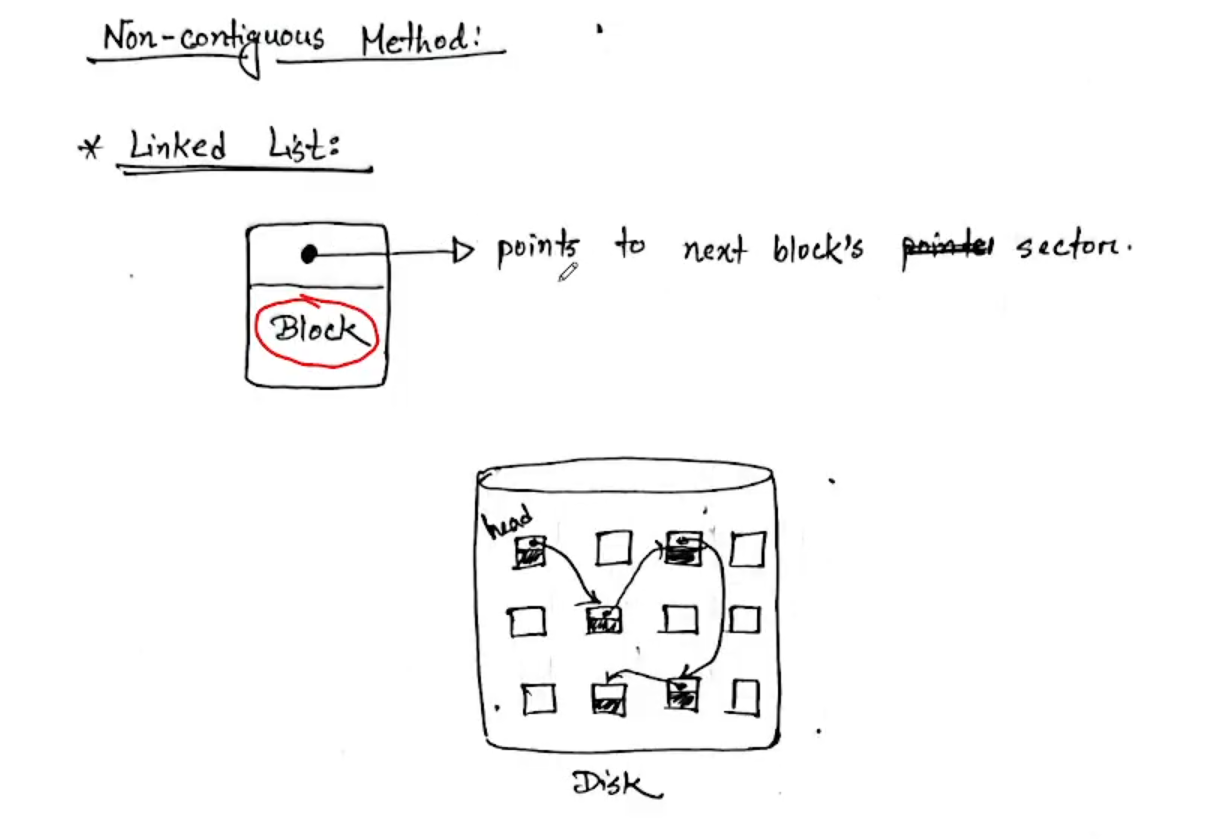 Non-contiguous Method:
* Linked List:
points to next block's pointer sector.
Block
head
Disk